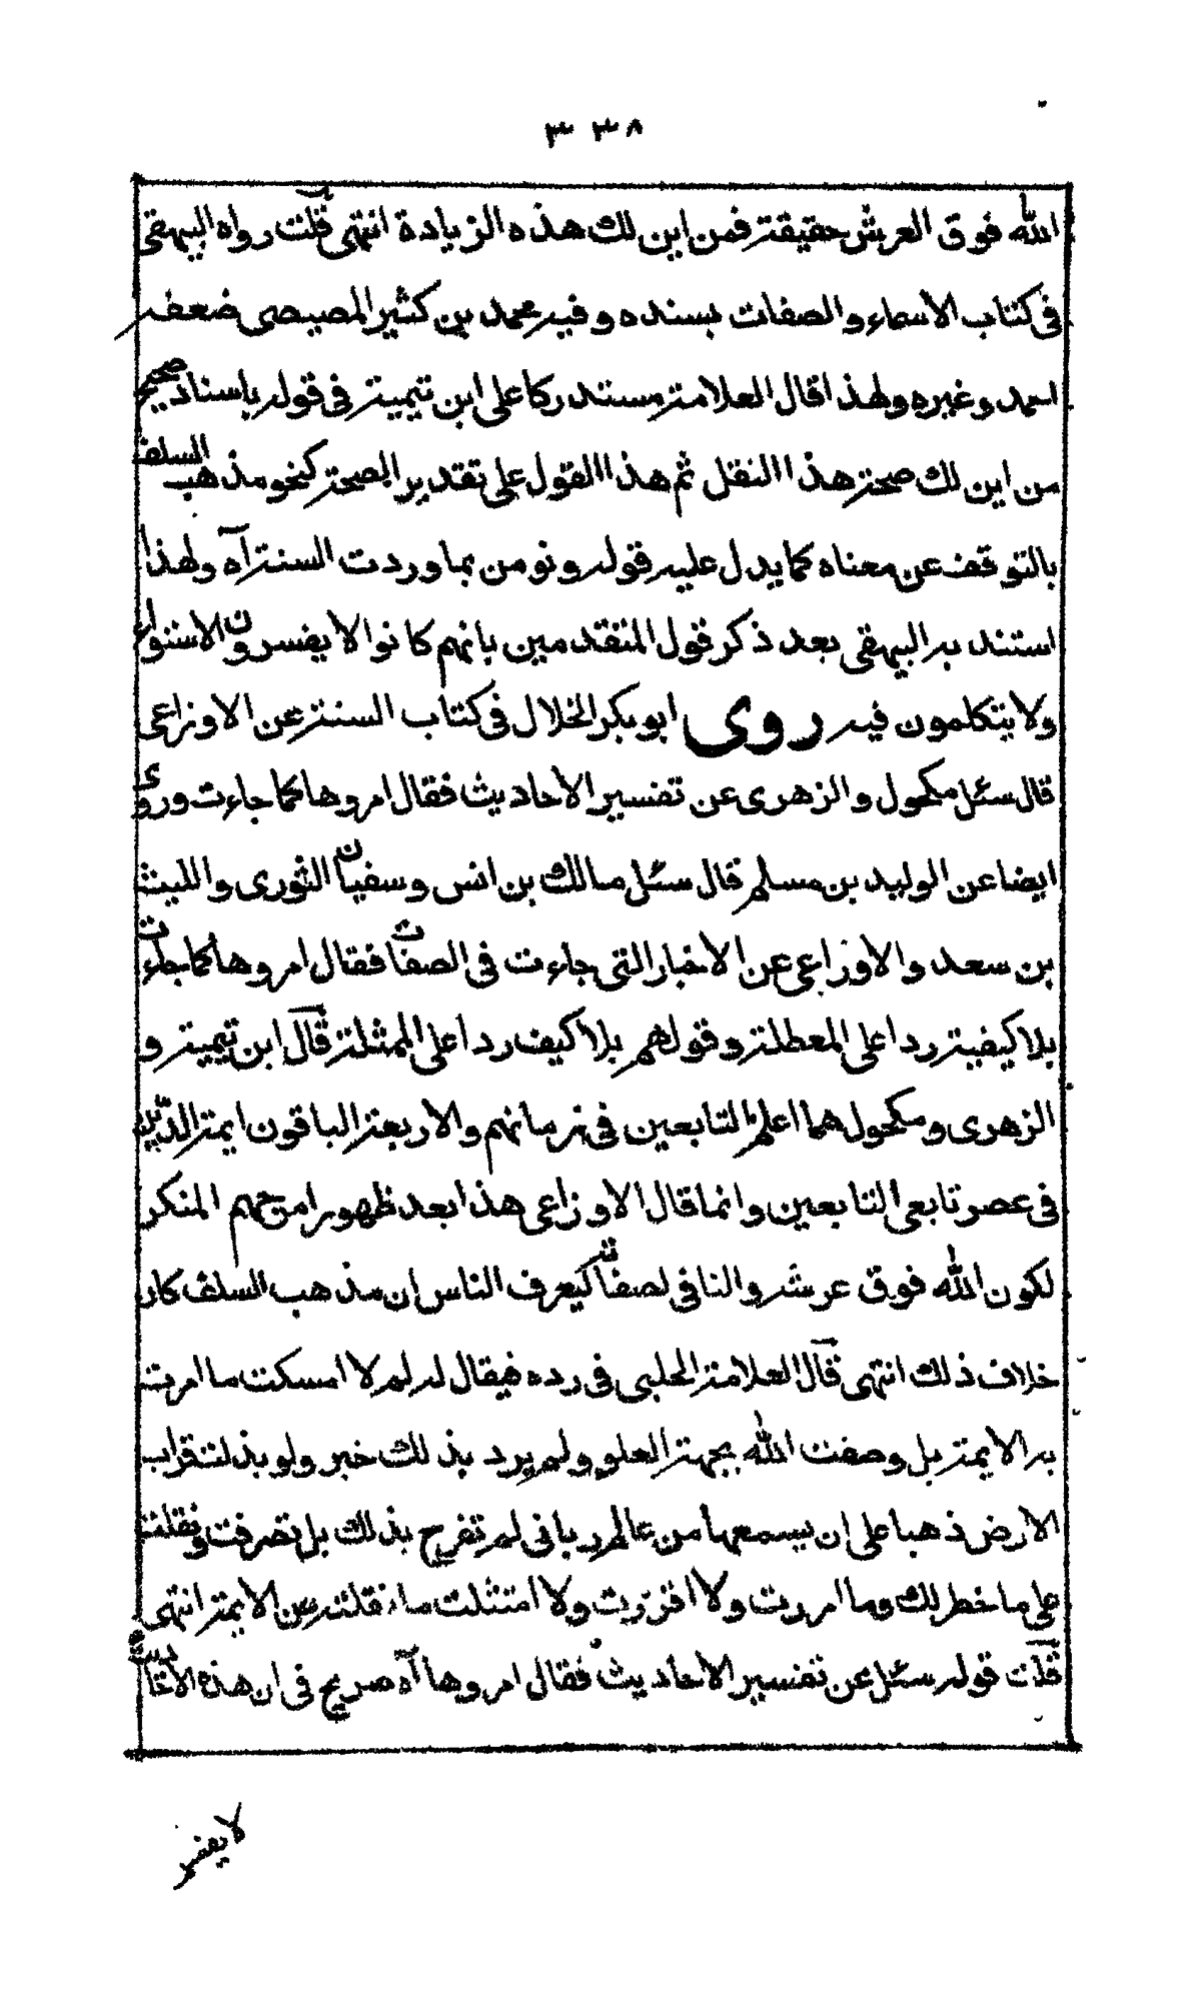 ٣٣٨
الله فوق العرش حقيقة فمن اين لك هذه الزيادة انتهى قلت رواه البيهقى
فى كتاب الاسماء والصفات بسنده وفيه محمد بن كثير المصيصى ضعفه
احمد وغيره ولهذا قال العلامة مستدركا على ابن تيمية فى قوله باسناد صحيح
من اين لك صحة هذا النقل ثم هذا القول على تقدير الصحة كنحو مذهب السلف
بالتوقف عن معناه كما يدل عليه قوله ونومن بما وردت السنة آه ولهذا
استند به البيهقى بعد ذكر قول المتقدمين بانهم كانوا لا يفسرون الاستواء
ولا يتكلمون فيه روى ابو بكر الخلال فى كتاب السنة عن الاوزاعى
قال سئل مكحول والزهرى عن تفسير الاحاديث فقال امروها كما جاءت وروى
ايضا عن الوليد بن مسلم قال سئل مالك بن انس وسفيان الثورى والليث
بن سعد والاوزاعى عن الاخبار التى جاءت فى الصفات فقال امروها كما جاءت
بلا كيفية ردا على المعطلة وقولهم بلا كيف ردا على الممثلة قال ابن تيمية و
الزهرى ومكحول هما اعلم التابعين فى زمانهم والاربعة الباقون ايمة الدين
فى عصر تابعى التابعين وانما قال الاوزاعى هذا بعد ظهور امر جهم المنكر
لكون الله فوق عرشه والنافى لصفاته ليعرف الناس ان مذهب السلف كان
خلاف ذلك انتهى قال العلامة الحلبى فى رده فيقال له لم لا امسكت ما امرت
به الايمة بل وصفت الله بجهة العلو ولم يرد بذلك خبر ولو بذلت قراب
الارض ذهبا على ان يسمعها من عالم ربانى لم تفرح بذلك بل تصرفت ونقلت
على ما خطر لك وما امررت ولا اقررت ولا امتثلت ما نقلته عن الايمة انتهى
قلت قوله سئل عن تفسير الاحاديث فقال امروها آه صريح فى ان هذه الاحاديث
لا يفسر